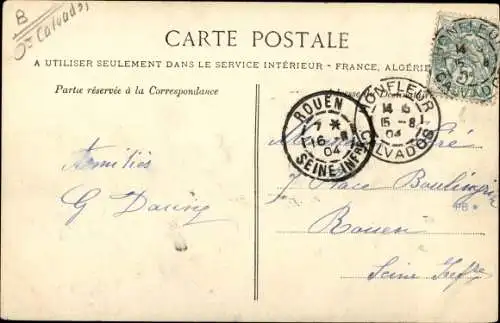 B
Calvados
CARTE POSTALE
A UTILISER SEULEMENT DANS LE SERVICE INTÉRIEUR - FRANCE, ALGÉRIE
Partie réservée à la Correspondance
HONFLEUR
CALVADOS
14
15
5c
HONFLEUR
14 6
15 - 8
04
CALVADOS
ROUEN
7 *
16 - 8
04
SEINE INFRE
Amitiés
G
7 Place
Rouen
PB
Seine Infre